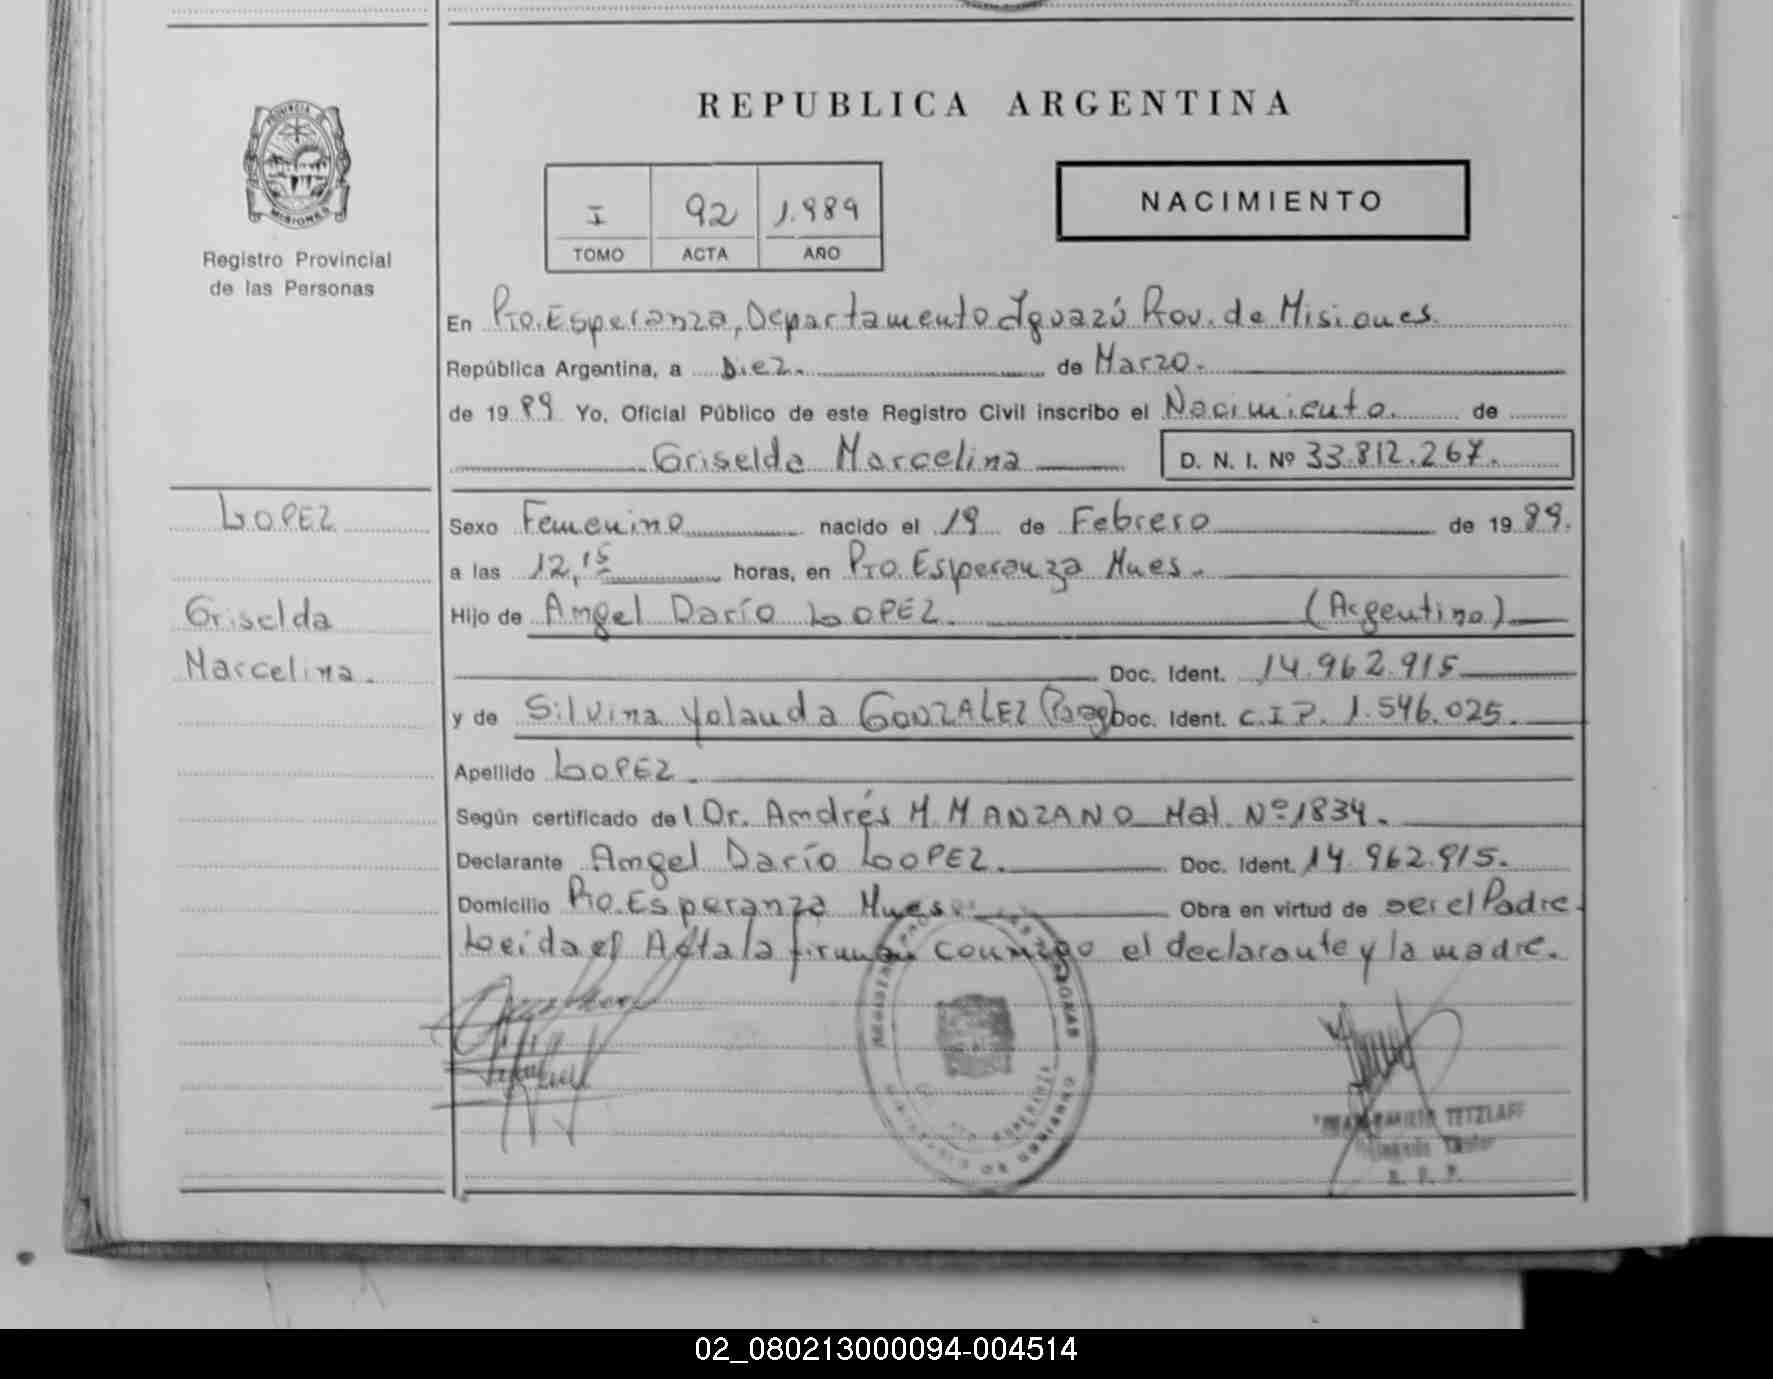 REPUBLICA ARGENTINA
PROVINCIA DE
MISIONES
Registro Provincial
de las Personas
I 92 1.989
TOMO ACTA AÑO
NACIMIENTO
En Pto. Esperanza, Departamento Iguazú Prov. de Misiones.
República Argentina, a Diez. de Marzo.
de 19 89 Yo, Oficial Público de este Registro Civil inscribo el Nacimiento. de
Griselda Marcelina D. N. I. Nº 33.812.267.
LOPEZ
Griselda
Marcelina.
Sexo Femenino nacido el 19 de Febrero de 19 89.
a las 12,15 horas, en Pto. Esperanza Mnes.
Hijo de Angel Darío LOPEZ. (Argentino)
Doc. Ident. 14.962.915
y de Silvina Yolanda GONZALEZ (Parg) Doc. Ident. C.I.P. 1.546.025.
Apellido LOPEZ.
Según certificado del Dr. Andrés M. MANZANO Mat. Nº 1834.
Declarante Angel Darío LOPEZ. Doc. Ident. 14.962.915.
Domicilio Pto. Esperanza Mnes. Obra en virtud de ser el Padre.
Leida el Acta la firman conmigo el declarante y la madre.
TETZLAFF
02_080213000094-004514